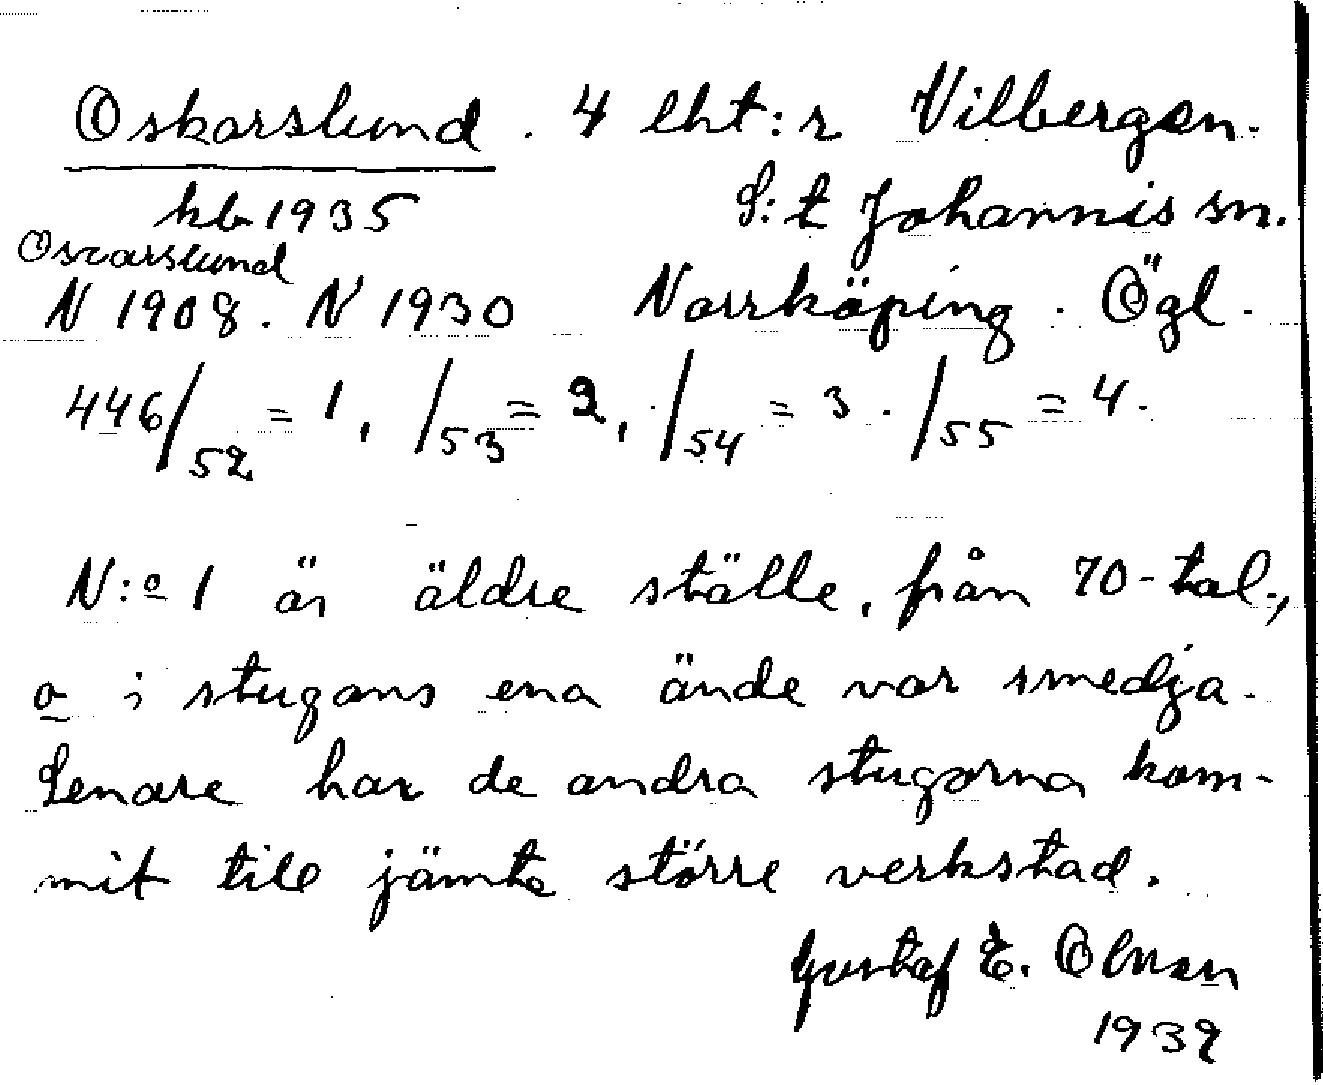 Oskarslund. 4 lht:r Vilbergen.
hb 1935 S:t Johannis sn.
Oscarslund
N 1908. N 1930 Norrköping. Ögl.
446/52 = 1, /53 = 2, /54 = 3. /55 = 4.
N:o 1 är äldre ställe, från 70-tal.,
o i stugans ena ände var smedja.
Senare har de andra stugorna kom-
mit till jämte större verkstad.
Gustaf E.
1932